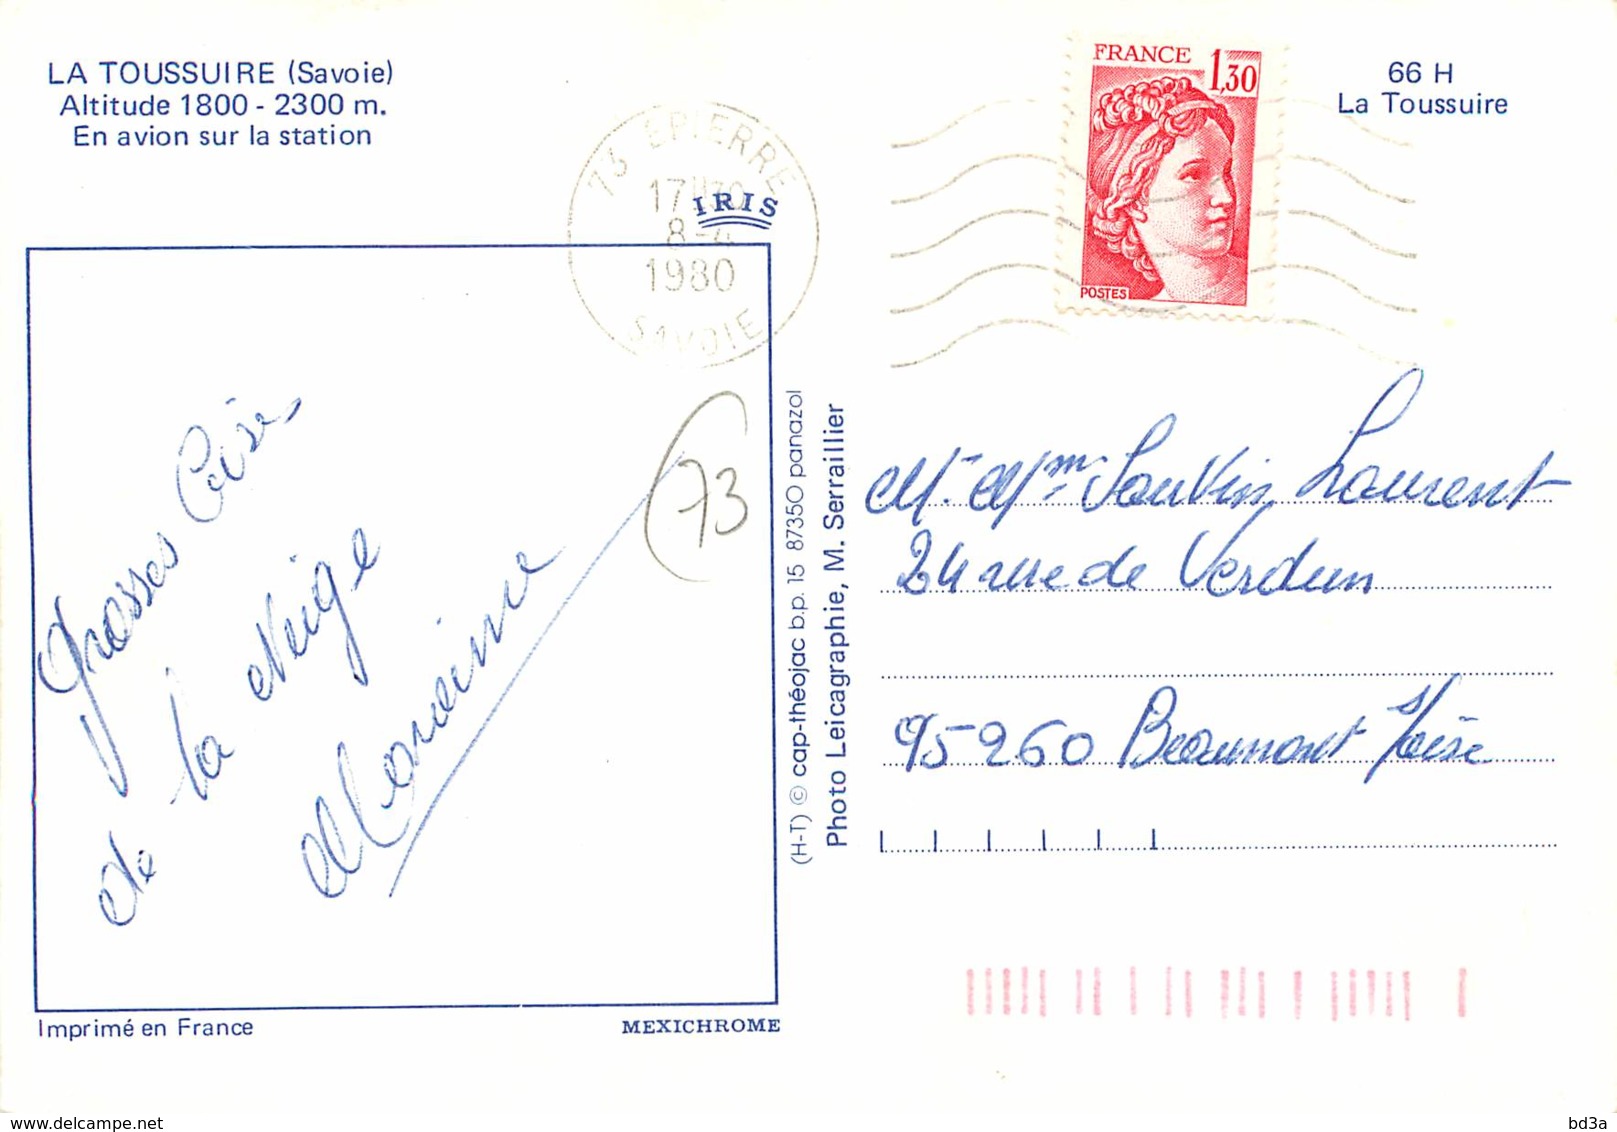 LA TOUSSUIRE (Savoie)
Altitude 1800 - 2300 m.
En avion sur la station
73 EPIERRE
17H30
8-4
1980
SAVOIE
IRIS
FRANCE
1,30
POSTES
66 H
La Toussuire
Grosses
de la Neige
73
(H-T) © cap-théojac b.p. 15 87350 panazol
Photo Leicagraphie, M. Serraillier
Mr. Mme Sauvin Laurent
24 rue de Verdun
95260 Beaumont s/oise
Imprimé en France
MEXICHROME
delcampe.net
bd3a